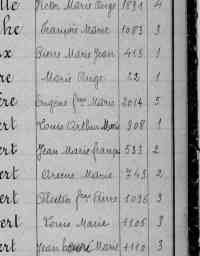 lle Victor Marie Ange 1891 4
he François Marie 1083 3
ux Pierre Marie Jean 413 1
re Marie Ange 22 1
ère Eugène fçois Marie 2014 5
ert Louis Arthur Marie 908 1
ert Jean Marie françois 533 2
ert Arsène Marie 743 2
ert fçois Pierre 1096 3
ert Louis Marie 1105 3
ert Jean Marie 1110 3